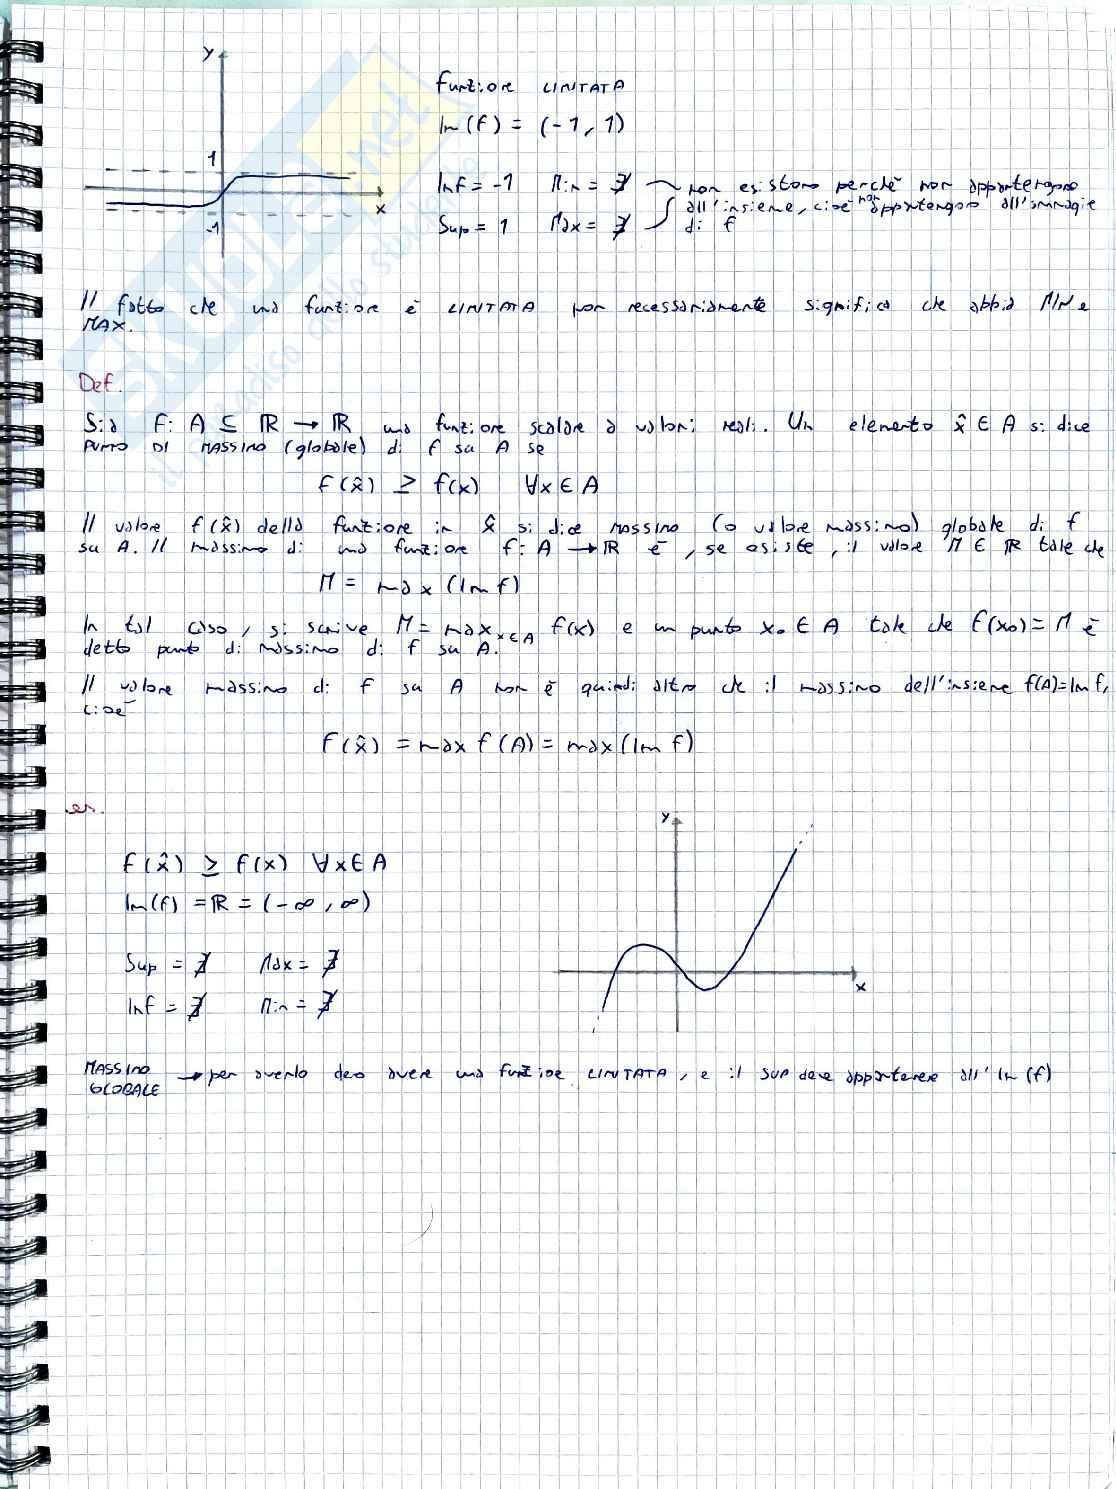 y
1
-1
x
Funzione LIMITATA
Im(f) = (-1, 1)
Inf = -1 Min = ∄
Sup = 1 Max = ∄
non esistono perchè non appartengono
all'insieme, cioè non appartengono all'immagie
di f
Il fatto che una funzione è LIMITATA non necessariamente significa che abbia MIN e
MAX.
Def.
Sia f: A ⊆ ℝ → ℝ una funzione scalare a valori reali. Un elemento x̂ ∈ A si dice
PUNTO DI MASSIMO (globale) di f su A se
f(x̂) ≥ f(x) ∀x ∈ A
Il valore f(x̂) della funzione in x̂ si dice massimo (o valore massimo) globale di f
su A. Il massimo di una funzione f: A → ℝ è, se esiste, il valore M ∈ ℝ tale che
M = max (Im f)
In tal caso, si scrive M = max x∈A f(x) e un punto x₀ ∈ A tale che f(x₀) = M è
detto punto di massimo di f su A.
Il valore massimo di f su A non è quindi altro che il massimo dell'insieme f(A)=Im f,
cioè
f(x̂) = max f(A) = max (Im f)
es.
f(x̂) ≥ f(x) ∀x∈A
Im(f) = ℝ = (-∞, ∞)
Sup = ∄ Max = ∄
Inf = ∄ Min = ∄
y
x
MASSIMO
GLOBALE → per averlo devo avere una funzione LIMITATA, e il SUP deve appartenere all'Im(f)
SKUOLA.net
il paradiso dello studente